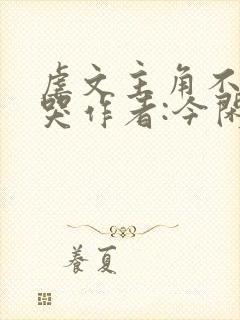 虐文主角不
哭 作者:今陈
養夏